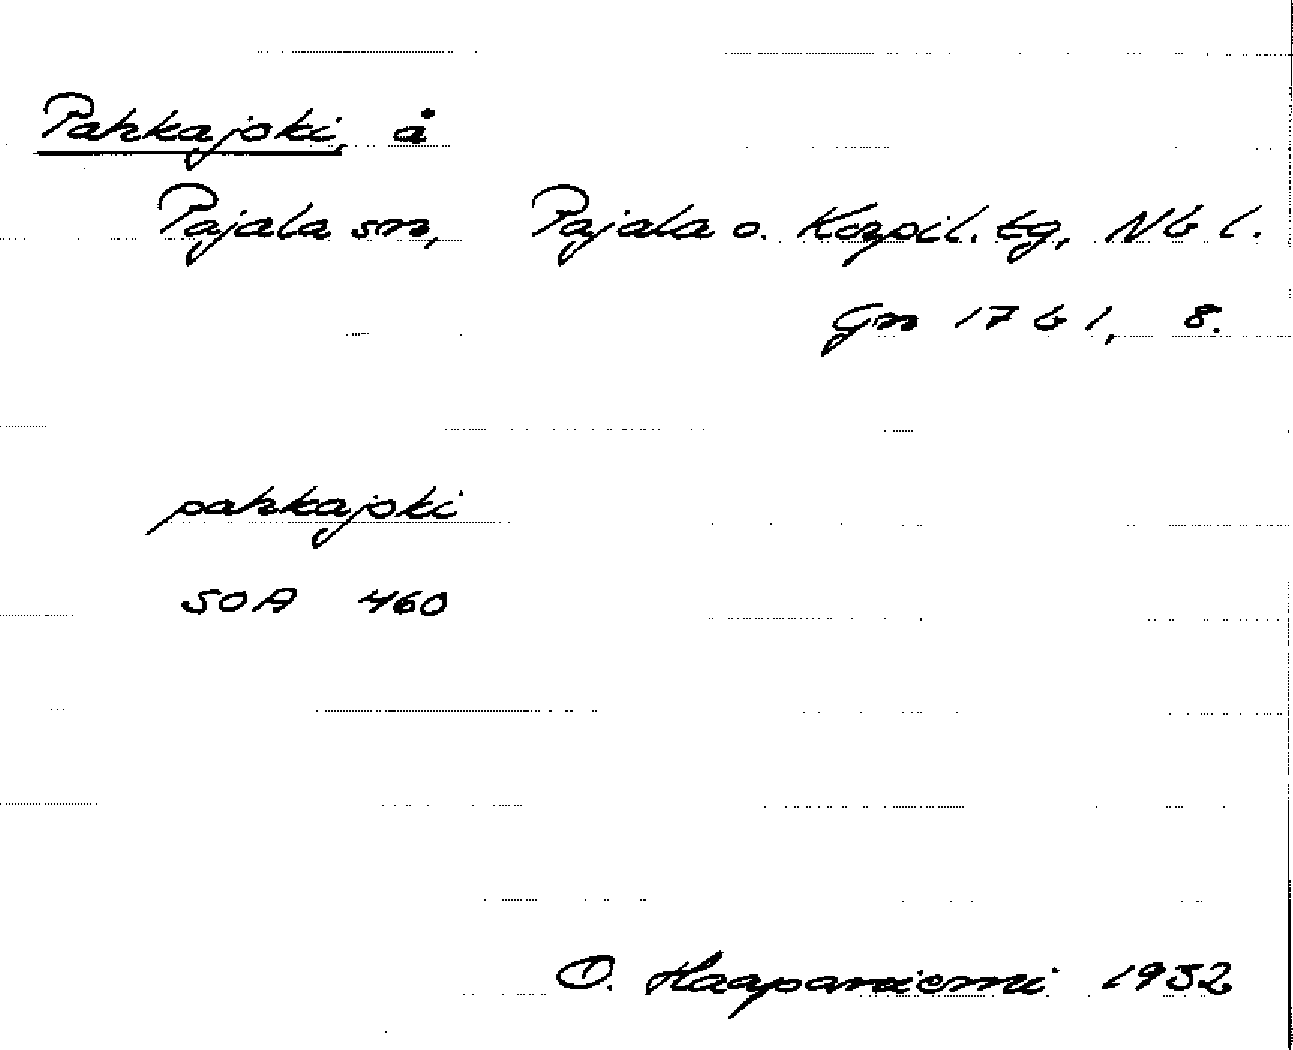 Pahkajoki, å
Pajala sn, Pajala o. Korpil. tg, Nb l.
Gn 17 b 1, 8.
pahkajoki
SOA 460
O. Haapaniemi 1952